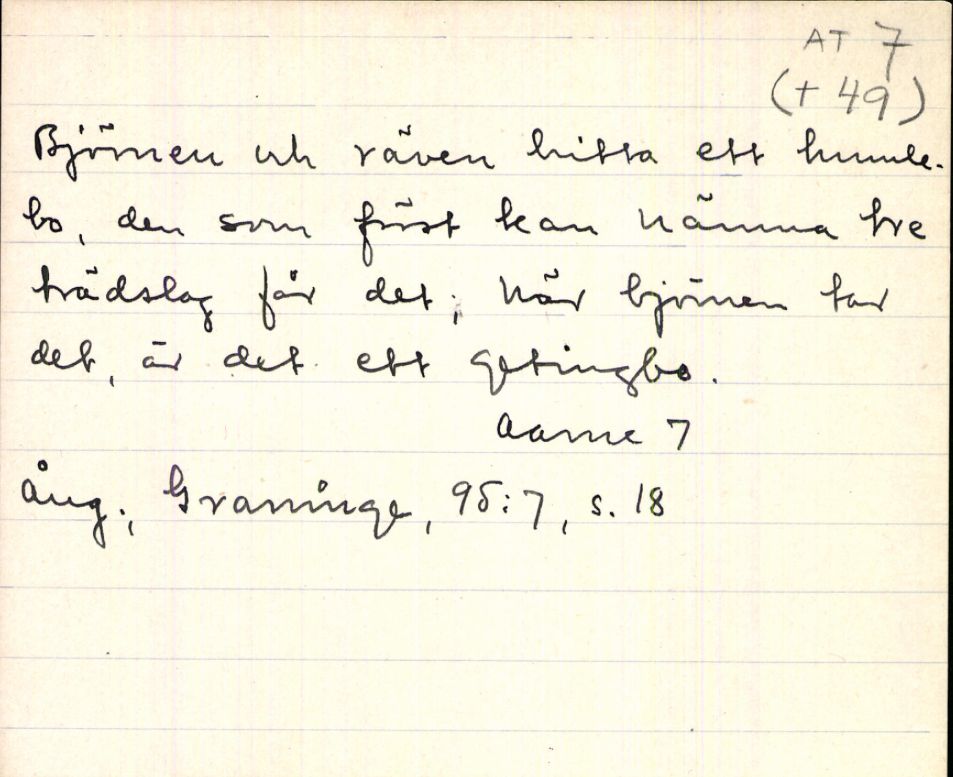 AT 7
(+ 49)
Björnen och räven hitta ett humle-
bo, den som först kan nämna tre
trädslag får det; När björnen tar
det, är det ett getingbo.
Aarne 7
Ång., Graninge, 98:7, s. 18